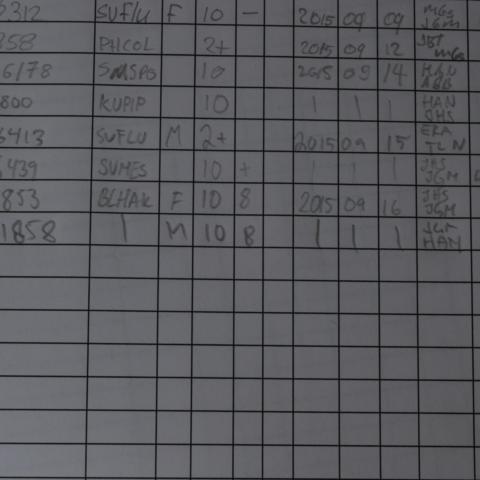 312 SUFLU F 10 - 2015 09 09 MGS JGM
858 PHCOL 2+ 2015 09 12 JBT MGS
6178 SMSPO 10 2015 09 14 HAN
800 KUPIP 10 | | | HAN SHS
6413 SUFLU M 2+ 2015 09 15 ERA TLN
439 SUMES 10 + | | | JES JGM
853 BLHAK F 10 8 2015 09 16 JES JGM
1858 | M 10 8 | | | JGM HAN